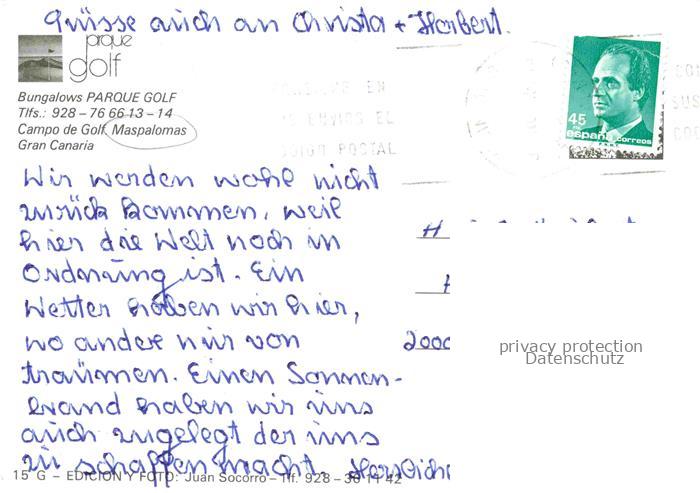 Grüsse auch an Christa + Herbert.
parque
golf
Bungalows PARQUE GOLF
Tlfs.: 928 – 76 66 13 – 14
Campo de Golf, Maspalomas
Gran Canaria
CONSIGNE EN
SUS ENVIOS EL
CODIGO POSTAL
45
españa correos
Wir werden wohl nicht
zurück kommen, weil
hier die Welt noch in
Ordnung ist. Ein
Wetter haben wir hier,
wo andere nur von
träumen. Einen Sonnen-
brand haben wir uns
auch zugelegt der uns
zu schaffen macht. Herzlich
H
2000
privacy protection
Datenschutz
15 G – EDICION Y FOTO: Juan Socorro – Tlf. 928 – 36 11 42